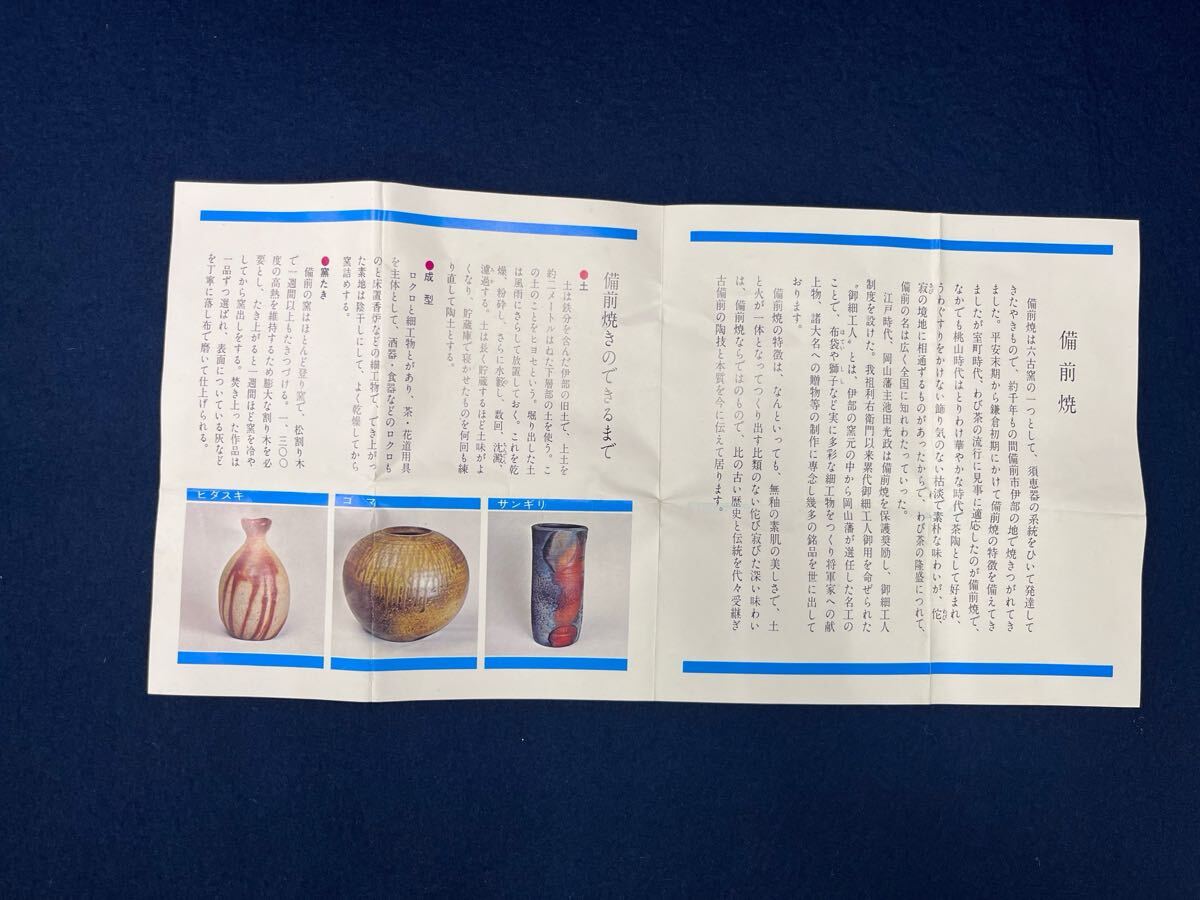 備前焼
備前焼は六古窯の一つとして、須恵器の系統をひいて発達して
きたやきもので、約千年もの間備前市伊部の地で焼きつがれてき
ました。平安末期から鎌倉初期にかけて備前焼の特徴を備えてき
ましたが室町時代、わび茶の流行に見事に適応したのが備前焼で、
なかでも桃山時代はとりわけ華やかな時代で茶陶として好まれ、
うわぐすりをかけない飾り気のない枯淡で素朴な味わいが、侘、
寂の境地に相通ずるものがあったからで、わび茶の隆盛につれて、
備前の名は広く全国に知れわたっていった。
江戸時代、岡山藩主池田光政は備前焼を保護奨励し、御細工人
制度を設けた。我祖利右衛門以来累代御細工人御用を命ぜられた
"御細工人"とは、伊部の窯元の中から岡山藩が選任した名工の
ことで、布袋や獅子など実に多彩な細工物をつくり将軍家への献
上物、諸大名への贈物等の制作に専念し幾多の銘品を世に出して
おります。
備前焼の特徴は、なんといっても、無釉の素肌の美しさで、土
と火が一体となってつくり出す比類のない侘び寂びた深い味わい
は、備前焼ならではのもので、比の古い歴史と伝統を代々受継ぎ
古備前の陶技と本質を今に伝えて居ります。
備前焼きのできるまで
●土
土は鉄分を含んだ伊部の旧土で、上土を
約二メートルはねた下層部の土を使う。こ
の土のことをヒヨセという。堀り出した土
は風雨にさらして放置しておく。これを乾
燥、粉砕し、さらに水簸し、数回、沈澱、
濾過する。土は長く貯蔵するほど土味がよ
くなり、貯蔵庫で寝かせたものを何回も練
り直して陶土とする。
●成型
ロクロと細工物とがあり、茶・花道用具
を主体として、酒器・食器などのロクロも
のと床置香炉などの細工物で、でき上がっ
た素地は陰干しにして、よく乾燥してから
窯詰めする。
●窯たき
備前の窯はほとんど登り窯で、松割り木
で一週間以上もたきつづける。一、三〇〇
度の高熱を維持するため膨大な割り木を必
要とし、たき上がると一週間ほど窯を冷や
してから窯出しをする。焚き上った作品は
一品ずつ選ばれ、表面についている灰など
を丁寧に落し布で磨いて仕上げられる。
サンギリ
ゴマ
ヒダスキ